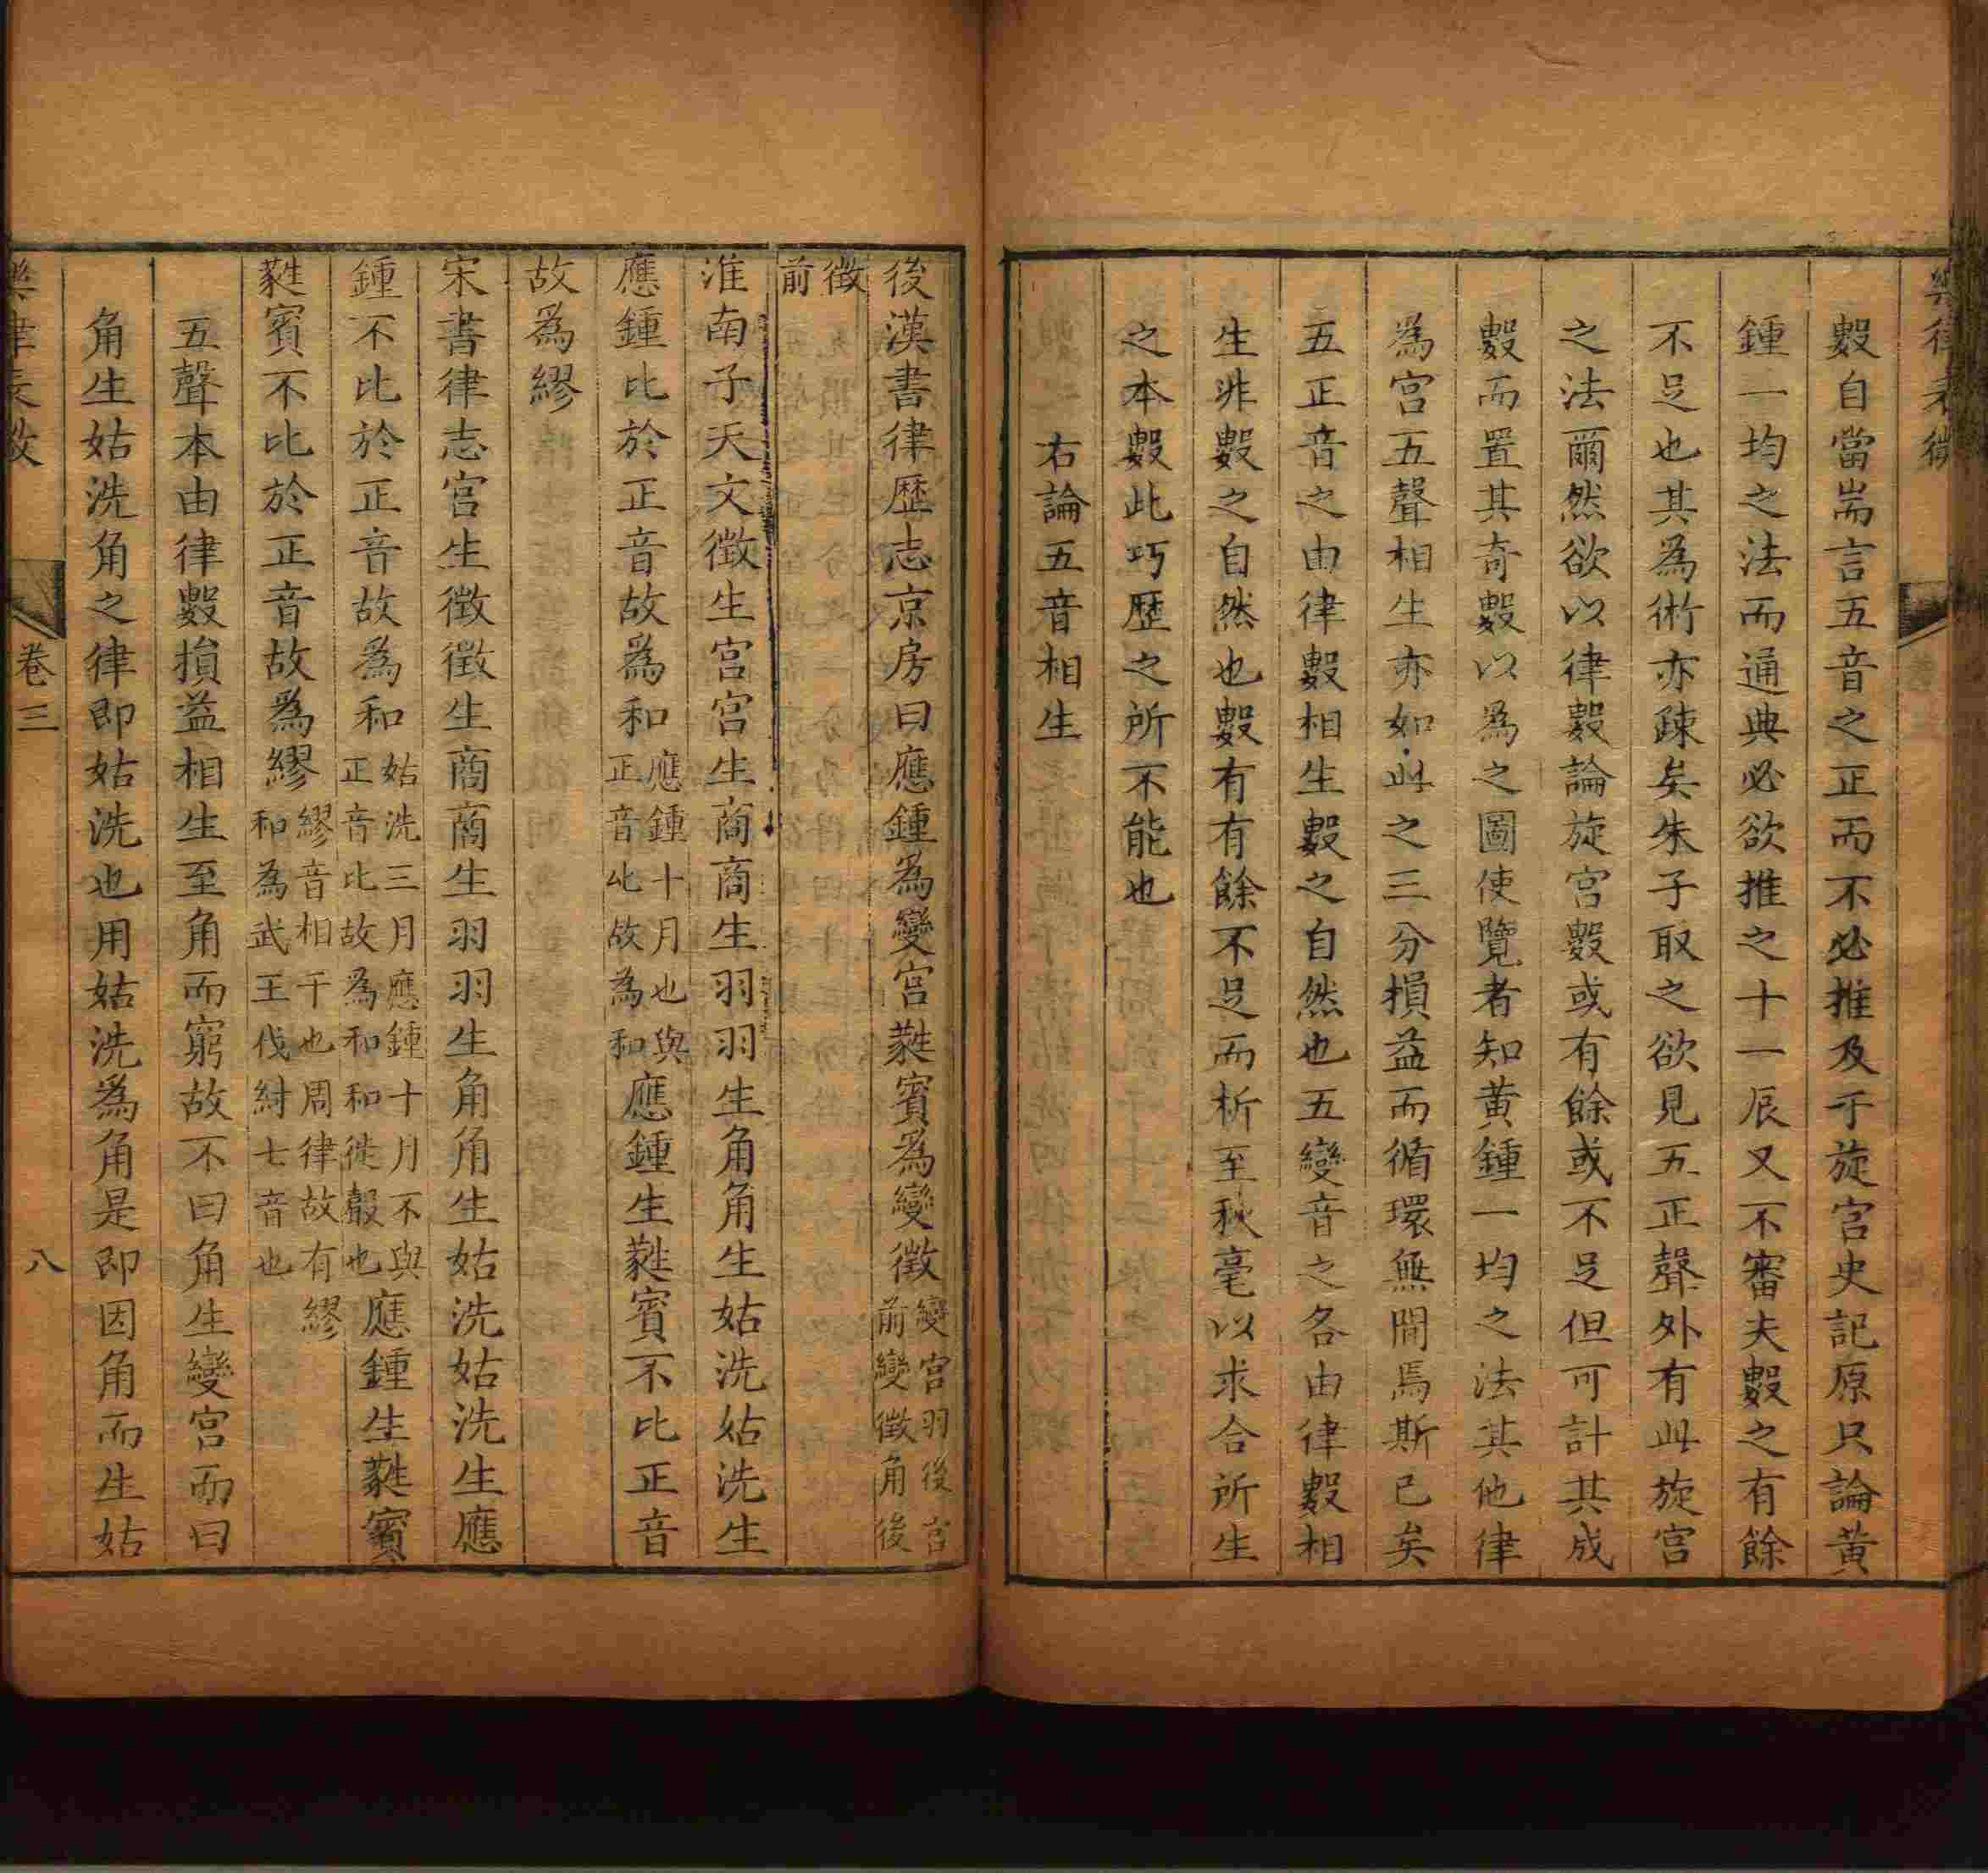 數自當耑言五音之正而不必推及于旋宮史記原只論黃
鍾一均之法而通典必欲推之十一辰又不審夫數之有餘
不足也其為術亦疎矣朱子取之欲見五正聲外有此旋宮
之法爾然欲以律數論旋宮數或有餘或不足但可計其成
數而置其奇數以為之圖使覽者知黃鍾一均之法其他律
為宮五聲相生亦如此之三分損益而循環無間焉斯已矣
五正音之由律數相生數之自然也五變音之各由律數相
生非數之自然也數有有餘不足而析至秋毫以求合所生
之本數此巧歷之所不能也
右論五音相生
後漢書律歷志京房曰應鍾為變宮蕤賓為變徵變宮羽後宮
前變徵角後
徵
前
淮南子天文徵生宮宮生商商生羽羽生角角生姑洗姑洗生
應鍾比於正音故為和應鍾十月也與
正音比故為和應鍾生蕤賓不比正音
故為繆
宋書律志宮生徵徵生商商生羽羽生角角生姑洗姑洗生應
鍾不比於正音故為和姑洗三月應鍾十月不與
正音比故為和和徙聲也應鍾生蕤賓
蕤賓不比於正音故為繆繆音相干也周律故有繆
和為武王伐紂七音也
五聲本由律數損益相生至角而窮故不曰角生變宮而曰
角生姑洗角之律即姑洗也用姑洗為角是即因角而生姑
卷三
八